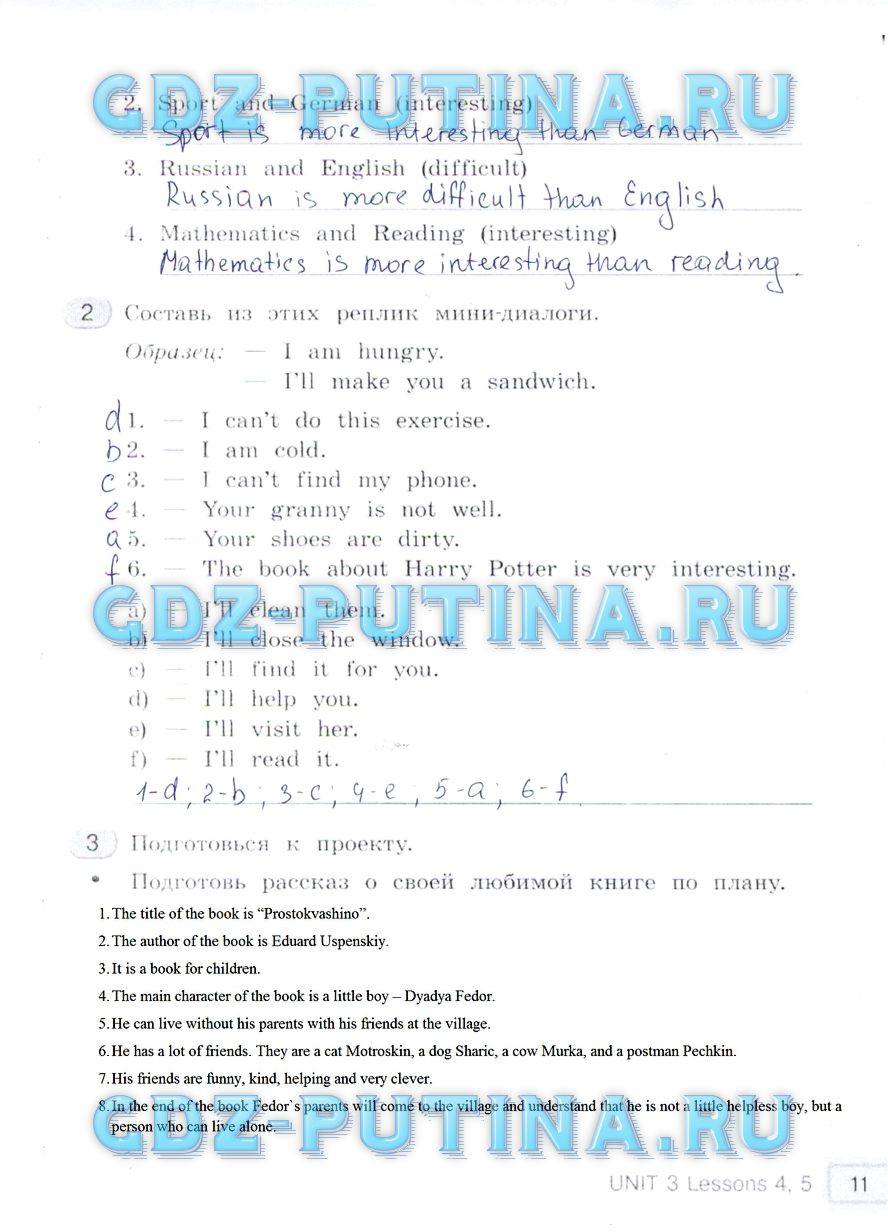 GDZ-PUTINA.RU
2. Sport and German (interesting)
Sport is more interesting than German
3. Russian and English (difficult)
Russian is more difficult than English
4. Mathematics and Reading (interesting)
Mathematics is more interesting than reading.
2 Составь из этих реплик мини-диалоги.
Образец: — I am hungry.
— I'll make you a sandwich.
d 1. — I can't do this exercise.
b 2. — I am cold.
c 3. — I can't find my phone.
e 4. — Your granny is not well.
a 5. — Your shoes are dirty.
f 6. — The book about Harry Potter is very interesting.
GDZ-PUTINA.RU
a) — I'll clean them.
b) — I'll close the window.
c) — I'll find it for you.
d) — I'll help you.
e) — I'll visit her.
f) — I'll read it.
1-d; 2-b; 3-c; 4-e, 5-a; 6-f.
3 Подготовься к проекту.
• Подготовь рассказ о своей любимой книге по плану.
1. The title of the book is “Prostokvashino”.
2. The author of the book is Eduard Uspenskiy.
3. It is a book for children.
4. The main character of the book is a little boy – Dyadya Fedor.
5. He can live without his parents with his friends at the village.
6. He has a lot of friends. They are a cat Motroskin, a dog Sharic, a cow Murka, and a postman Pechkin.
7. His friends are funny, kind, helping and very clever.
8. In the end of the book Fedor`s parents will come to the village and understand that he is not a little helpless boy, but a
person who can live alone.
GDZ-PUTINA.RU
UNIT 3 Lessons 4, 5 11